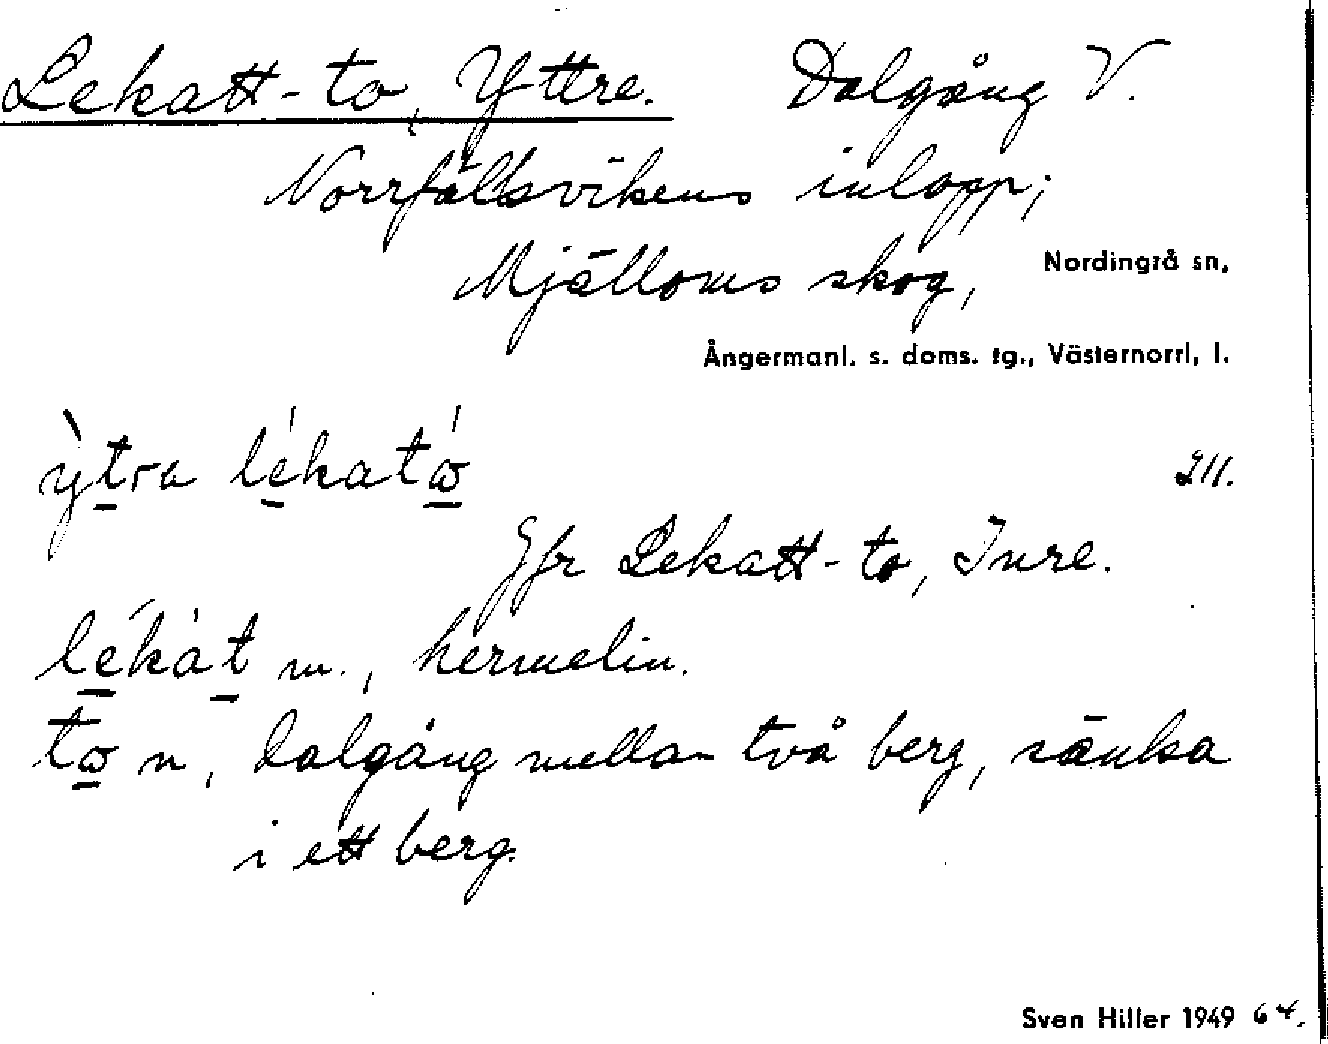 Lekatt-to, Yttre. Dalgång V.
Norrfällsvikens inlopp;
Mjälloms skog, Nordingrå sn,
Ångermanl. s. doms. tg., Västernorrl. l.
ỳtra lékató
211.
Jfr Lekatt-to, Inre.
lékàt m., hermelin.
to n, dalgång mellan två berg, sänka
i ett berg.
Sven Hiller 1949 64.